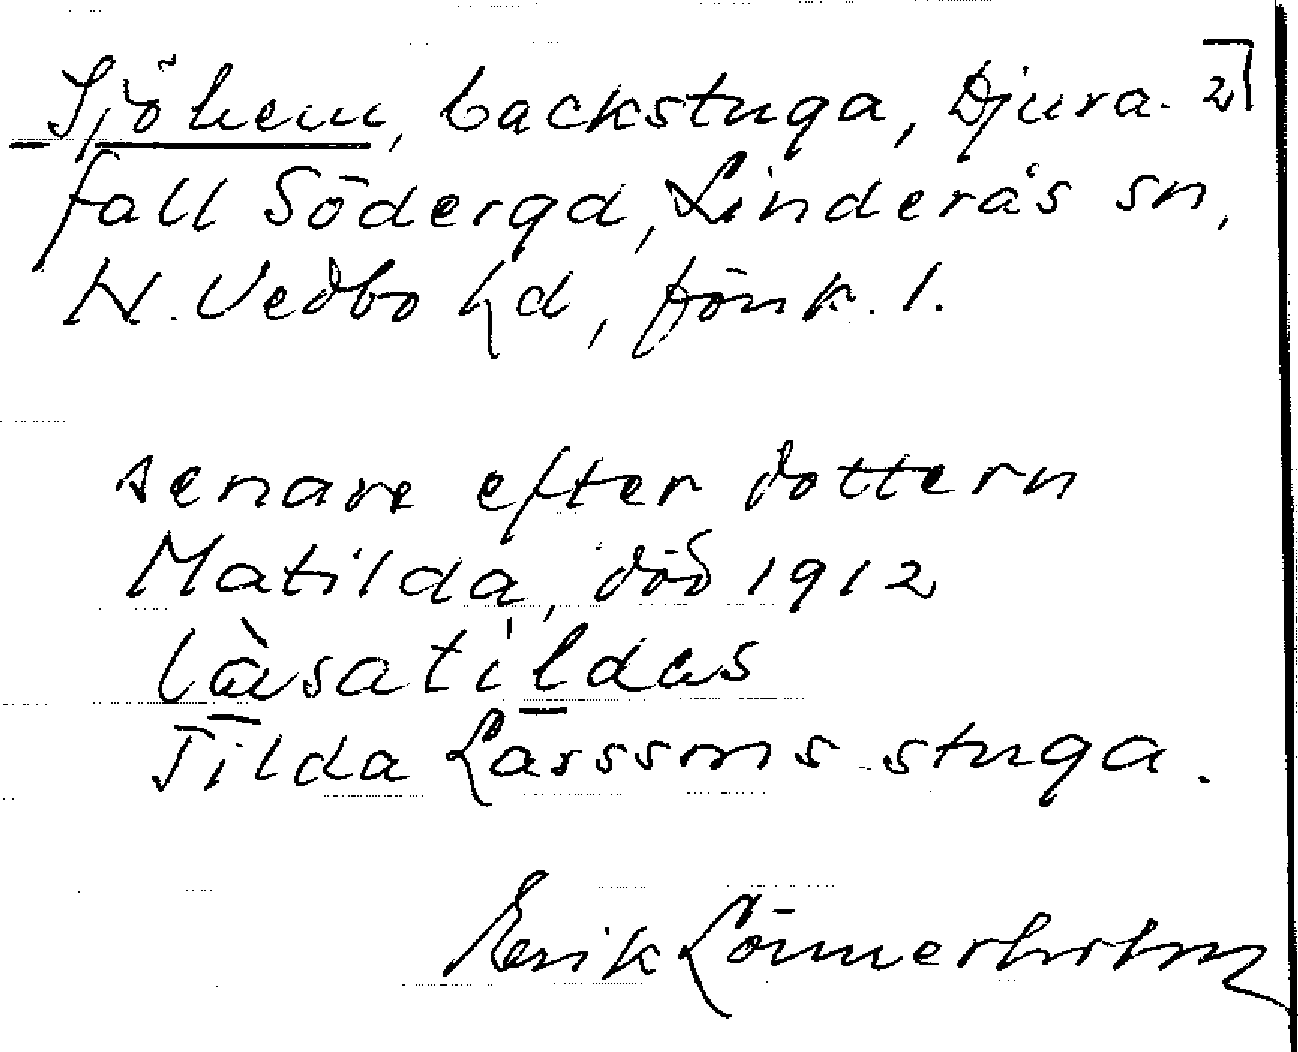 Sjöhem, backstuga, Djura- 2
fall Södergd, Linderås sn,
N. Vedbo hd, Jönk. l.
senare efter dottern
Matilda, död 1912
läsatildas
Tilda Larssons stuga.
Erik Lönnerholm